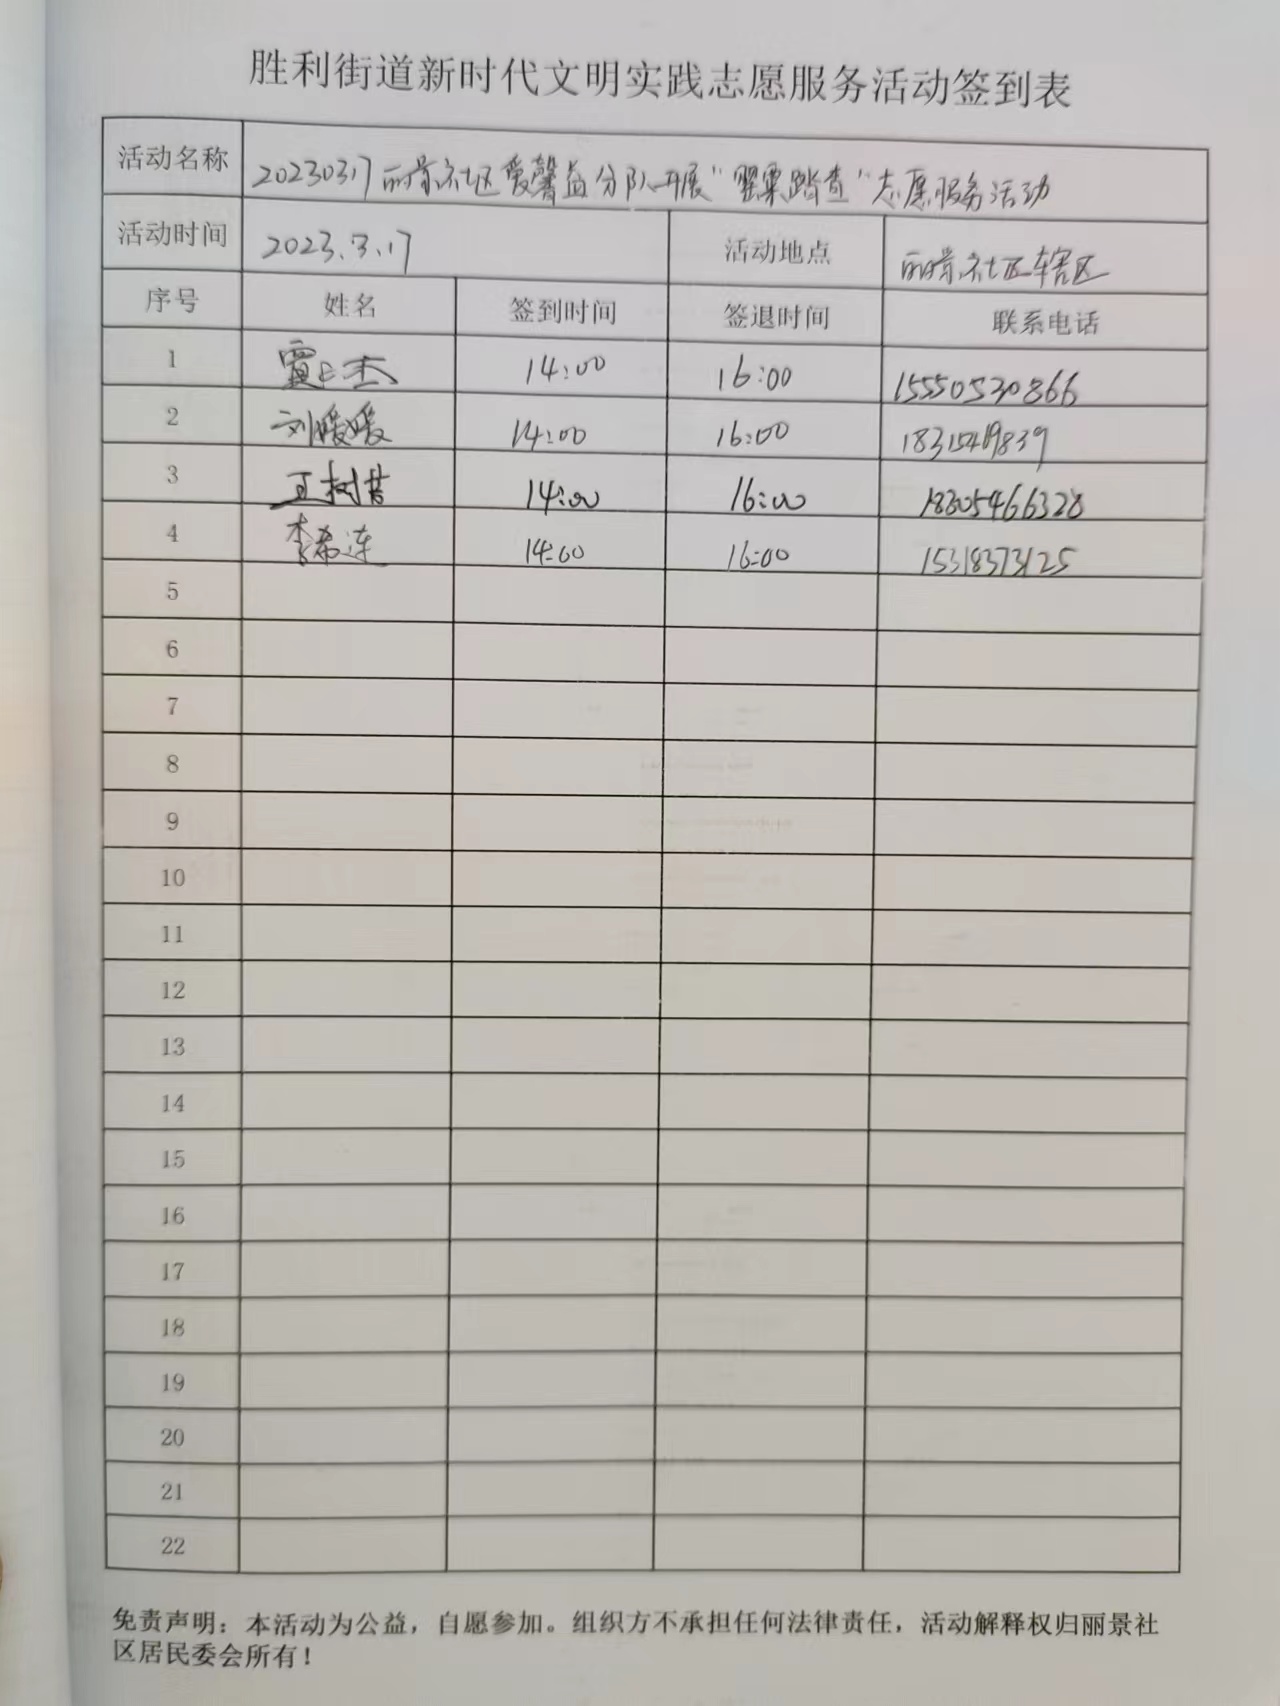 胜利街道新时代文明实践志愿服务活动签到表
活动名称 20230317丽景社区爱馨益分队开展“罂粟踏查”志愿服务活动
活动时间 2023.3.17 活动地点 丽景社区辖区
序号 姓名 签到时间 签退时间 联系电话
1 14:00 16:00 15550530866
2 刘媛媛 14:00 16:00
3 14:00 16:00 18305466328
4 李希连 14:00 16:00 15318373125
5
6
7
8
9
10
11
12
13
14
15
16
17
18
19
20
21
22
免责声明：本活动为公益，自愿参加。组织方不承担任何法律责任，活动解释权归丽景社
区居民委会所有！